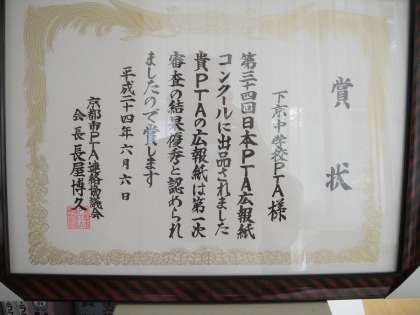 賞状
下京中学校PTA様
第三十四回日本PTA広報紙
コンクールに出品されました
貴PTAの広報紙は第一次
審査の結果優秀と認められ
ましたので賞します
平成二十四年六月六日
京都市PTA連絡協議会
会長 長屋博久